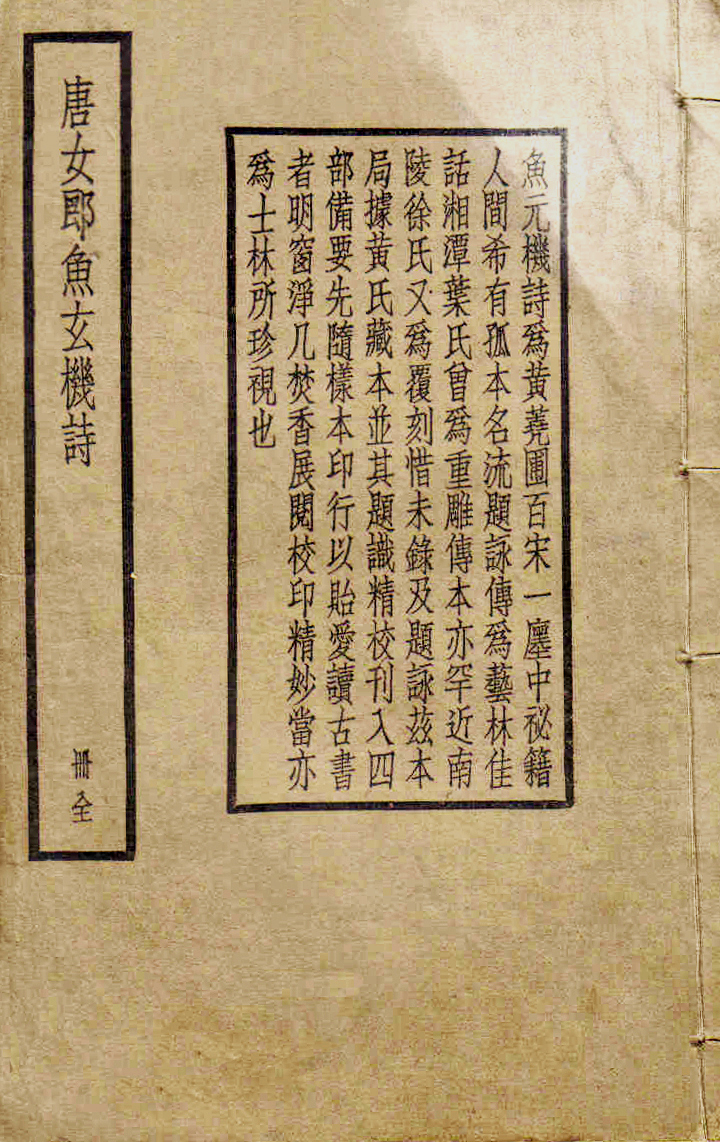 魚元機詩爲黃蕘圃百宋一廛中祕籍
人間希有孤本名流題詠傳爲藝林佳
話湘潭葉氏曾爲重雕傳本亦罕近南
陵徐氏又爲覆刻惜未錄及題詠茲本
局據黃氏藏本並其題識精校刊入四
部備要先隨樣本印行以貽愛讀古書
者明窗淨几焚香展閱校印精妙當亦
爲士林所珍視也
唐女郎魚玄機詩
冊全